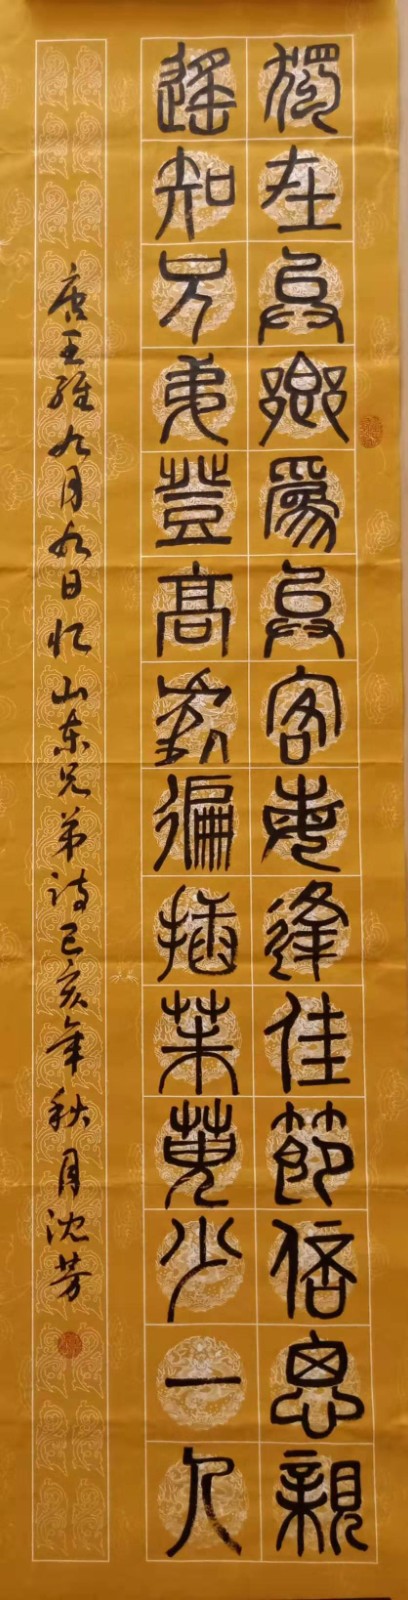 獨在異鄉爲異客每逢佳節倍思親
遙知兄弟登高處徧插茱萸少一人
唐王維九月九日忆山东兄弟诗己亥年秋月沈芳